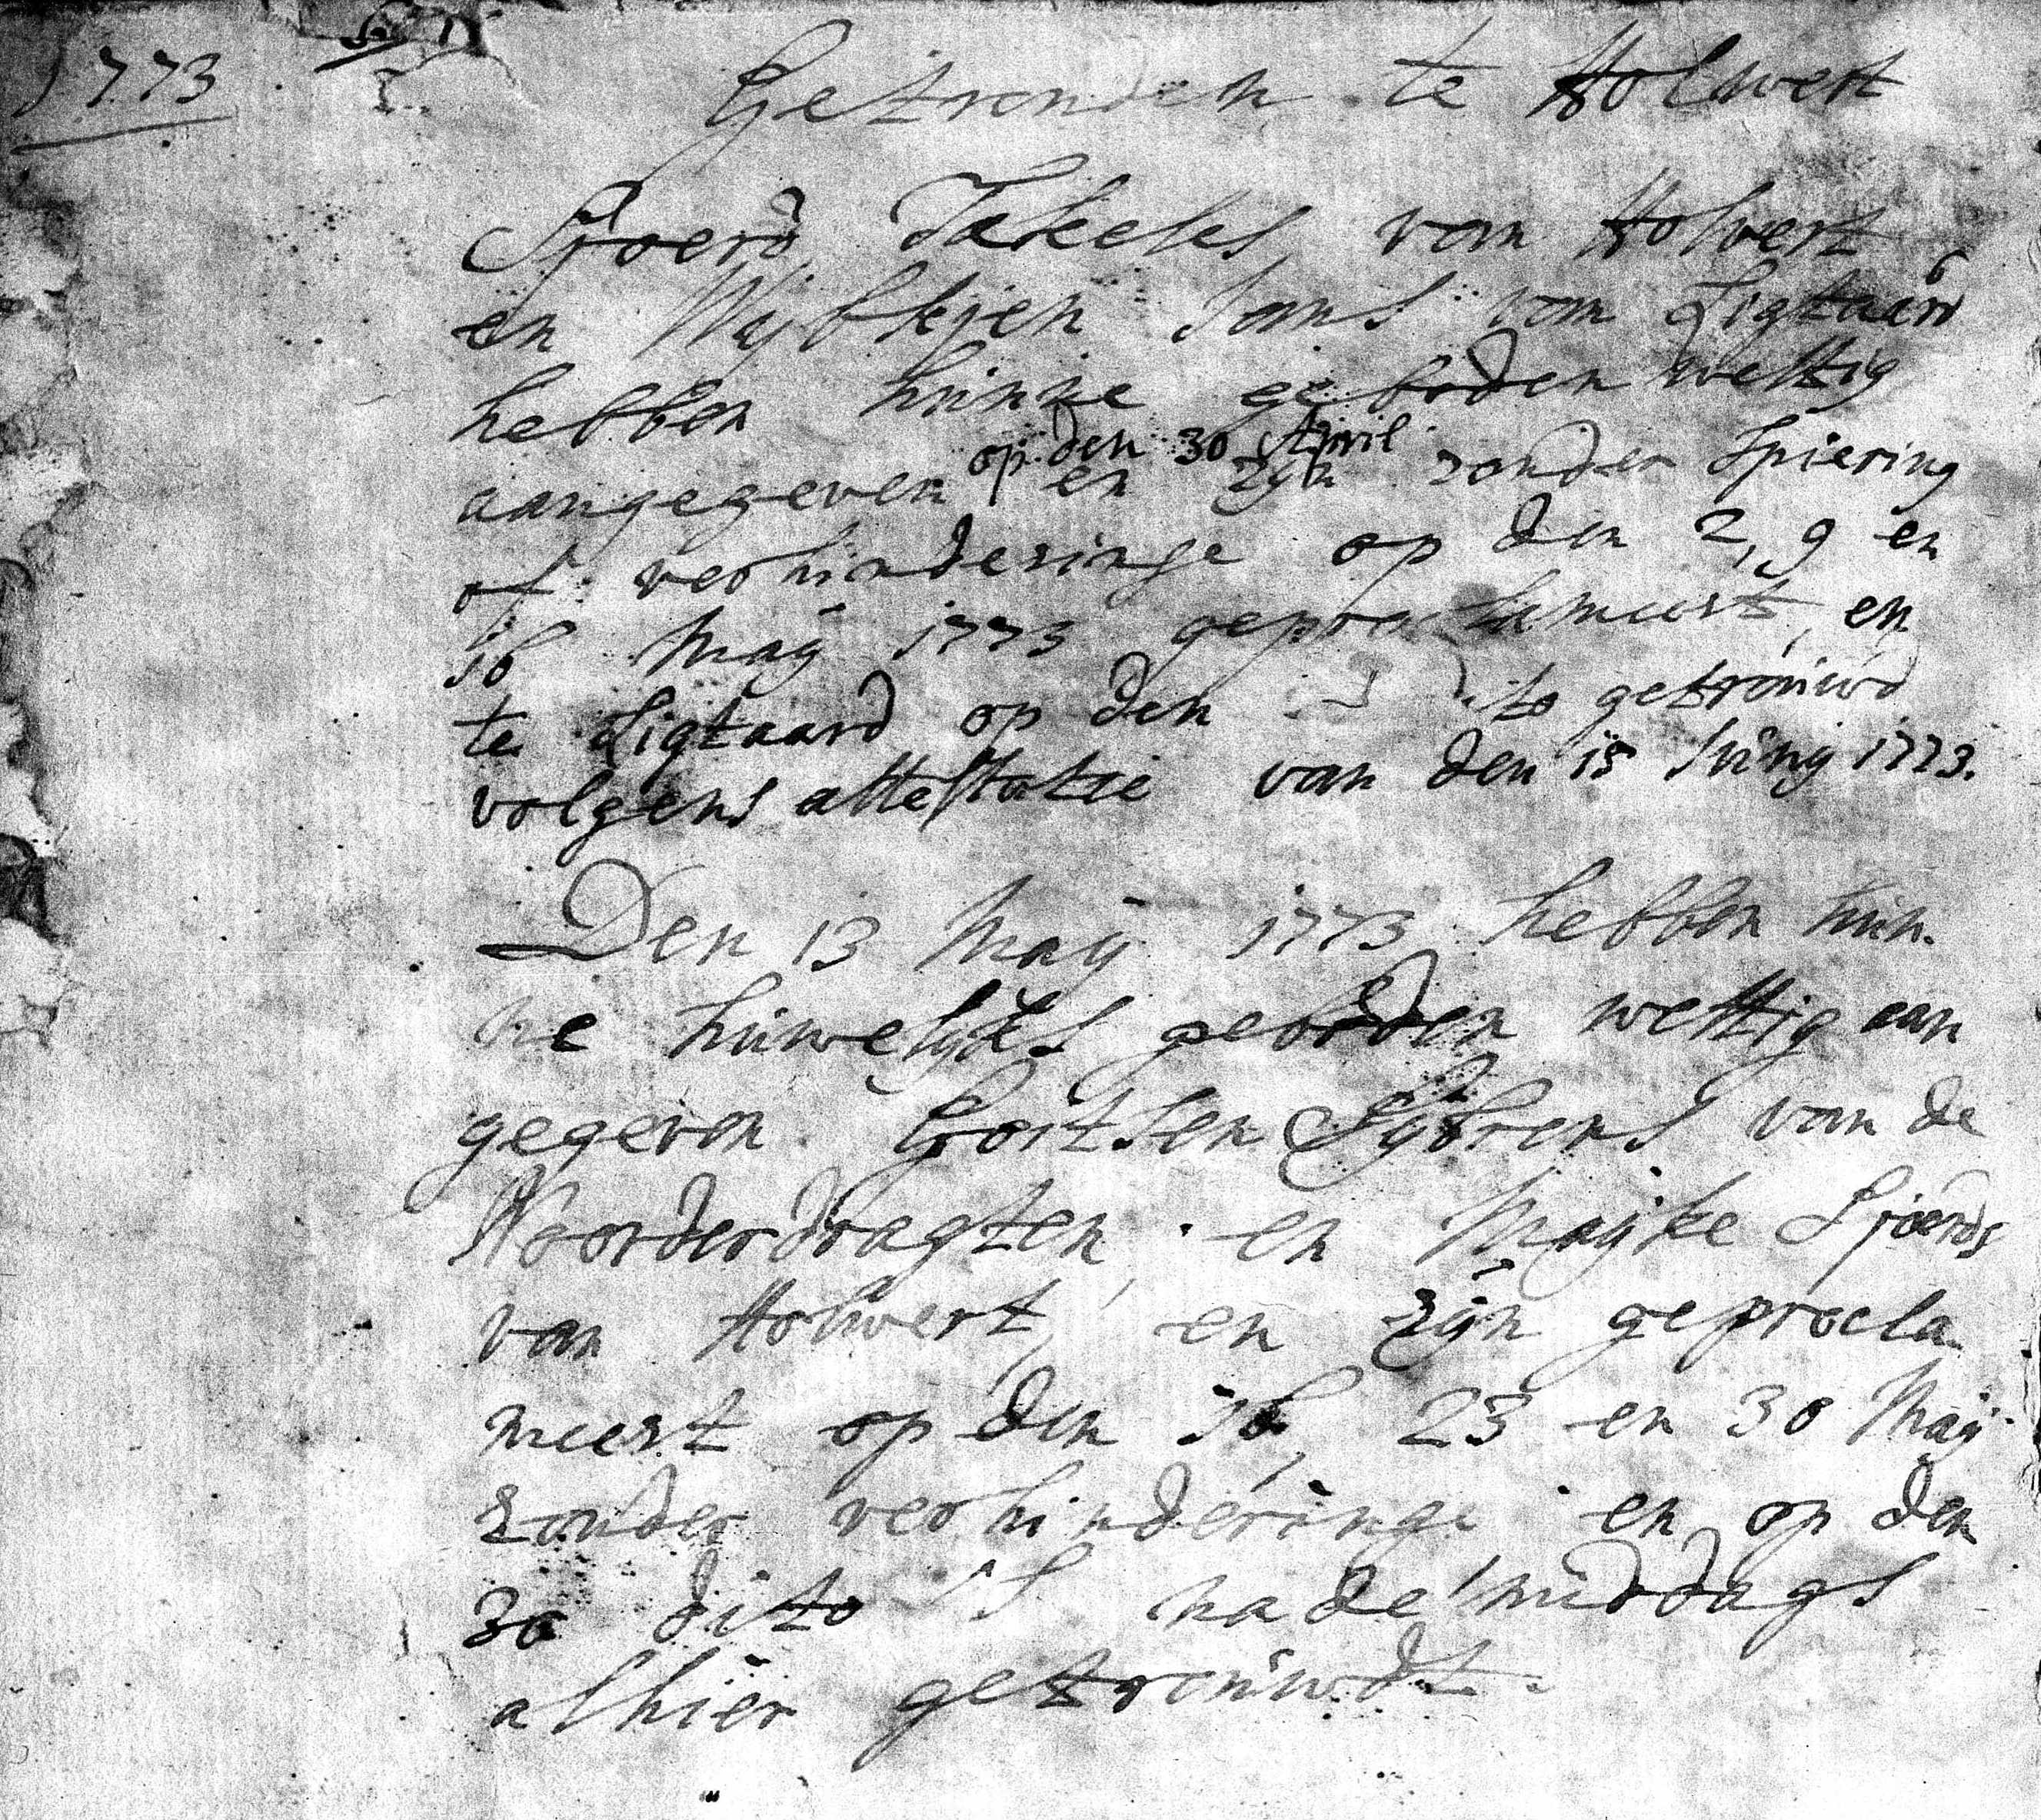 1773
Getrouden te Holwert
Sjoerd Takeles van Holwert
en Wijbkjen Jans van Ligtaard
hebben hunne geboden wettig
op den 30 April
aangegeven en zijn zonder Spiering
of verhinderinge op den 2, 9 en
16 Maij 1773 geproclameert, en
te Ligtaard op den dito getrouwd
volgens attestatie van den 15 Junij 1773.
Den 13 Maij 1773 hebben hun-
ne huwelijks geboden wettig aan
gegeven Gortsen Sijbrens van de
Noorderdragten en Maijke Sjoerds
van Holwert, en zijn geprocla-
meert op den 16, 23 en 30 Maij
zonder verhinderinge en op den
30 dito 's nademiddags
alhier getrouwdt.